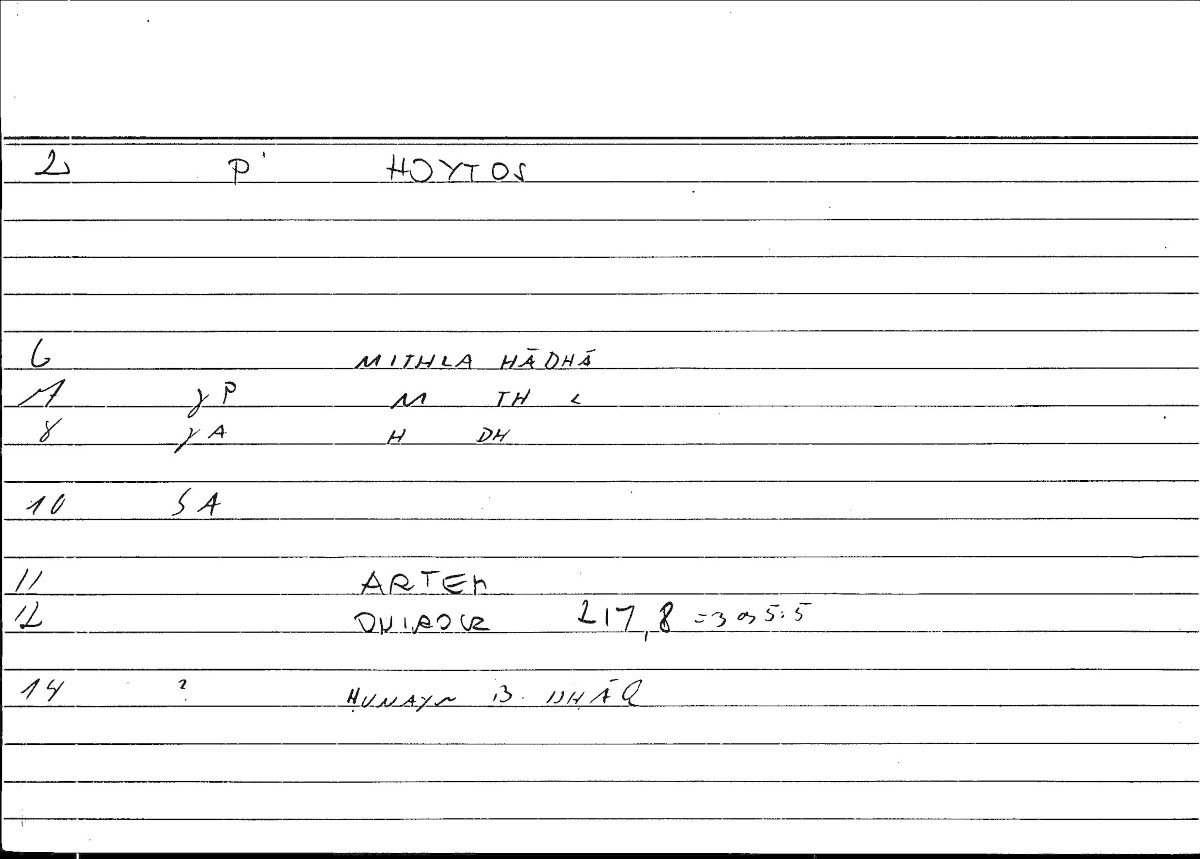 2 P' HOYTOS
6 MITHLA HĀDHĀ
7 γ P M TH L
8 γ A H DH
10 S A
11 ARTEM
12 217,8 = 3 5:5
14 ? ḤUNAYN B. ISḤĀQ